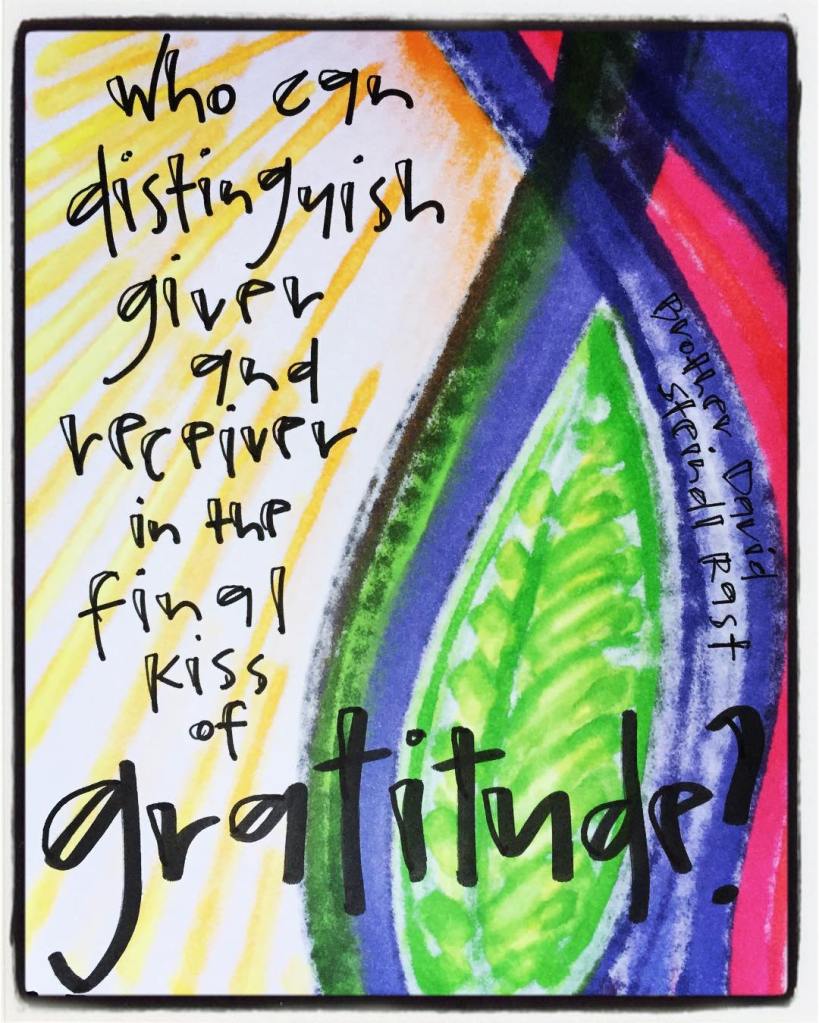 who can
distinguish
giver
and
receiver
in the
final
kiss
of
gratitude?
Brother David
Steindl Rast